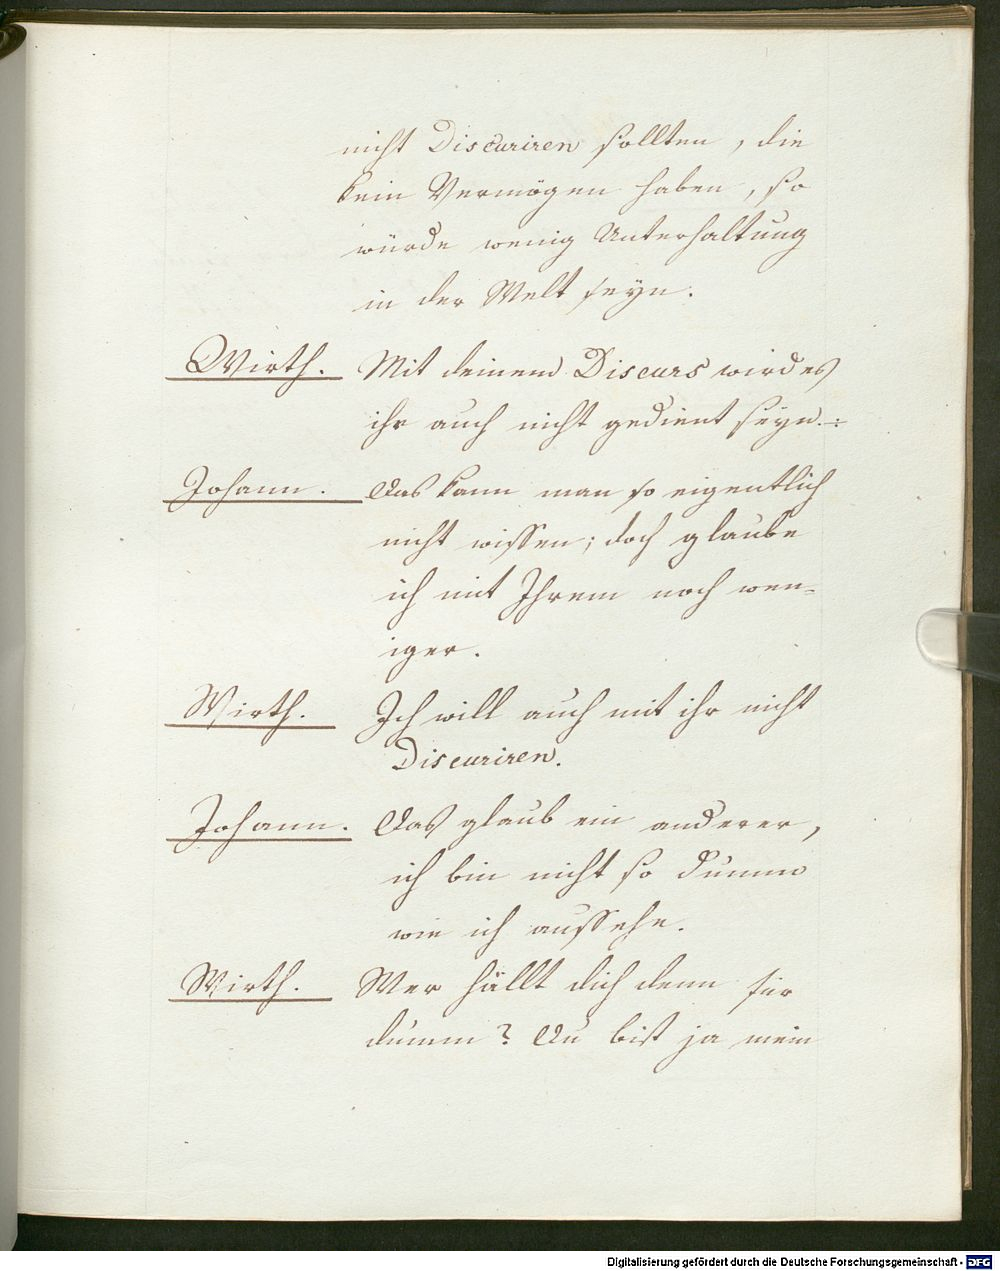 nicht Discuriren sollten, die
kein Vermögen haben, so
würde wenig Unterhaltung
in der Welt seyn.
Wirth. Mit deinem Discurs wird es
ihr auch nicht gedient seyn.÷
Johann. Das kann man so eigentlich
nicht wissen; doch glaube
ich mit Ihrem noch wen-
iger.
Wirth. Ich will auch mit ihr nicht
Discuriren.
Johann. Das glaub ein anderer,
ich bin nicht so dumm
wie ich aussehe.
Wirth. Wer hällt dich denn für
dumm? Du bist ja mein
Digitalisierung gefördert durch die Deutsche Forschungsgemeinschaft - DFG